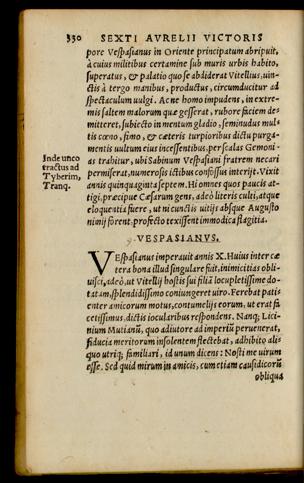 330 SEXTI AVRELII VICTORIS
pore Vespasianus in Oriente principatum abripuit,
à cuius militibus certamine sub muris urbis habito,
superatus, & palatio quo se abdiderat Vitellius, uin-
ctis à tergo manibus, productus, circumducitur ad
spectaculum uulgi. Ac ne homo impudens, in extre-
mis saltem malorum quæ gesserat, rubore faciem de-
mitteret, subiecto in mentum gladio, seminudus mul-
tis cœno, fimo, & cæteris turpioribus dictu purga-
mentis uultum eius incessentibus, per scalas Gemoni-
as trahitur, ubi Sabinum Vespasiani fratrem necari
permiserat, numerosis ictibus confossus interijt. Vixit
annis quinquaginta septem. Hi omnes quos paucis at-
tigi, præcipue Cæsarum gens, adeò literis culti, atque
eloquentia fuere, ut ni cunctis uitijs absque Augusto
nimij forent, profecto texissent immodica flagitia.
Inde unco
tractus ad
Tyberim,
Tranq.
9 VESPASIANVS.
VEspasianus imperauit annis X. Huius inter cæ
tera bona illud singulare fuit, inimicitias obli-
uisci, adeò, ut Vitellij hostis sui filiã locupletissime do-
tatam, splendidissimo coniungeret uiro. Ferebat pati-
enter amicorum motus, contumelijs eorum, ut erat fa
cetissimus, dictis iocularibus respondens. Nanq; Lici-
nium Mutianũ, quo adiutore ad imperiũ peruenerat,
fiducia meritorum insolentem flectebat, adhibito ali-
quo utriq; familiari, id unum dicens: Nosti me uirum
esse. Sed quid mirum in amicis, cum etiam causidicorũ
obliqua